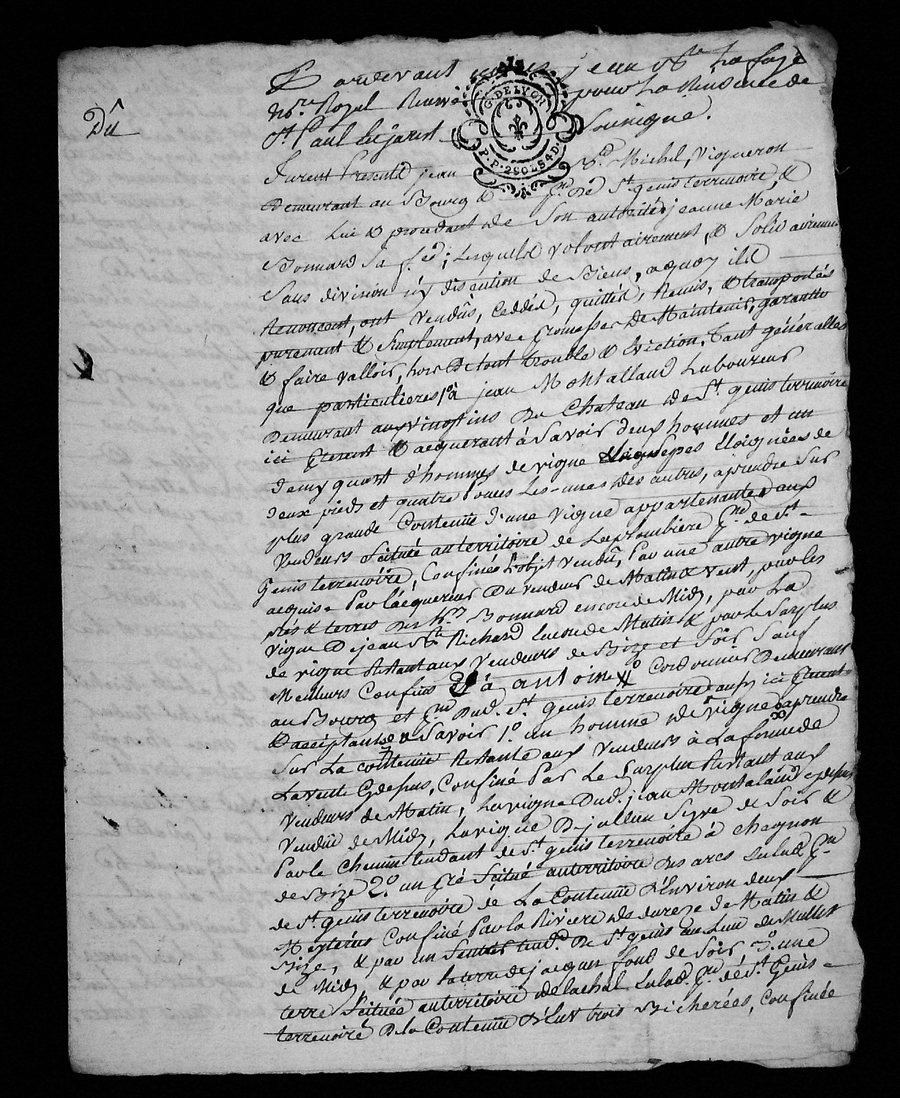 Du
Pardevant jean Bte La faye
nore Royal Reservé pour La Residence de
St Paul En jarest Soussigné.
G. DE LYON
P. P. 2 SOLS 4 D.
furent Presents jean Michel Vigneron
Demeurant au Bourg & De St genis terrenoire, &
avec Lui & procedant de Son autorité jeanne Marie
Bonnard Sa fe; Lesquels volontairement, & Solidairement
Sans division ny discution de Biens, aquoy ils
Renoncent, ont Vendus, Ceddés, quittés, Remis, & transportés
purement & Simplement, avec promesses de Maintenir, garantir
& faire valloir, hors De tout trouble & Eviction, tant générailes
que particulieres 1o à jean Montalland Laboureur
Demeurant aux vingt fins Du Chateau de St genis terrenoire
ici present & acquerant à Savoir deux hommes et un
demy quart d'hommes de vigne Sepes Eloignées de
deux pieds et quatre pouces Les unes des autres, aprendre Sur
plus grande Contenue d'une vigne appartenante aux
Vendeurs Scituée au territoire de La plombiere Psse de St
Genis terrenoire, Confinés L'objet Vendu, Par une autre vigne
acquise Par L'acquereur Du Vendeur de Matin & vent, par les
prés & terres Des hrs Bonnard encore de Midy, par La
vigne De jean Bte Richard encore de Matin & par le Surplus
de vigne Restant aux Vendeurs de Bize et Soir Sauf
Meilleurs Confins 2o à antoine Cordonnier Demeurant
au Bourg et Psse Dud. St genis terrenoire aussy ici present
& acceptant à Savoir 1o un homme de vigne à prendre
Sur La contenue Restante aux Vendeurs à La forme de
La vente Cydessus, Confiné Par Le Surplus Restant aux
Vendeurs de Matin, La vigne Dud. jean Montaland cydessus
Vendue de Midy, La vigne De jullien de Soir &
Par le Chemin tendant de St genis terrenoire à Chagnon
de Bize 2o un Pré Scitué au territoire des arcs Sulad. Psse
de St genis terrenoire de La Contenue D'Environ deux
Meterées Confiné Par la Riviere de dureze de Matin &
Bize, & par un Sentier tendt De St genis au Lieu de
de Midy, & par La terre de jacques fond de Soir 3o une
terre Scituée au territoire de Lachal Sulad. Psse de St Genis
terrenoire De la Contenue D'Env. trois Bicherées, Confinée